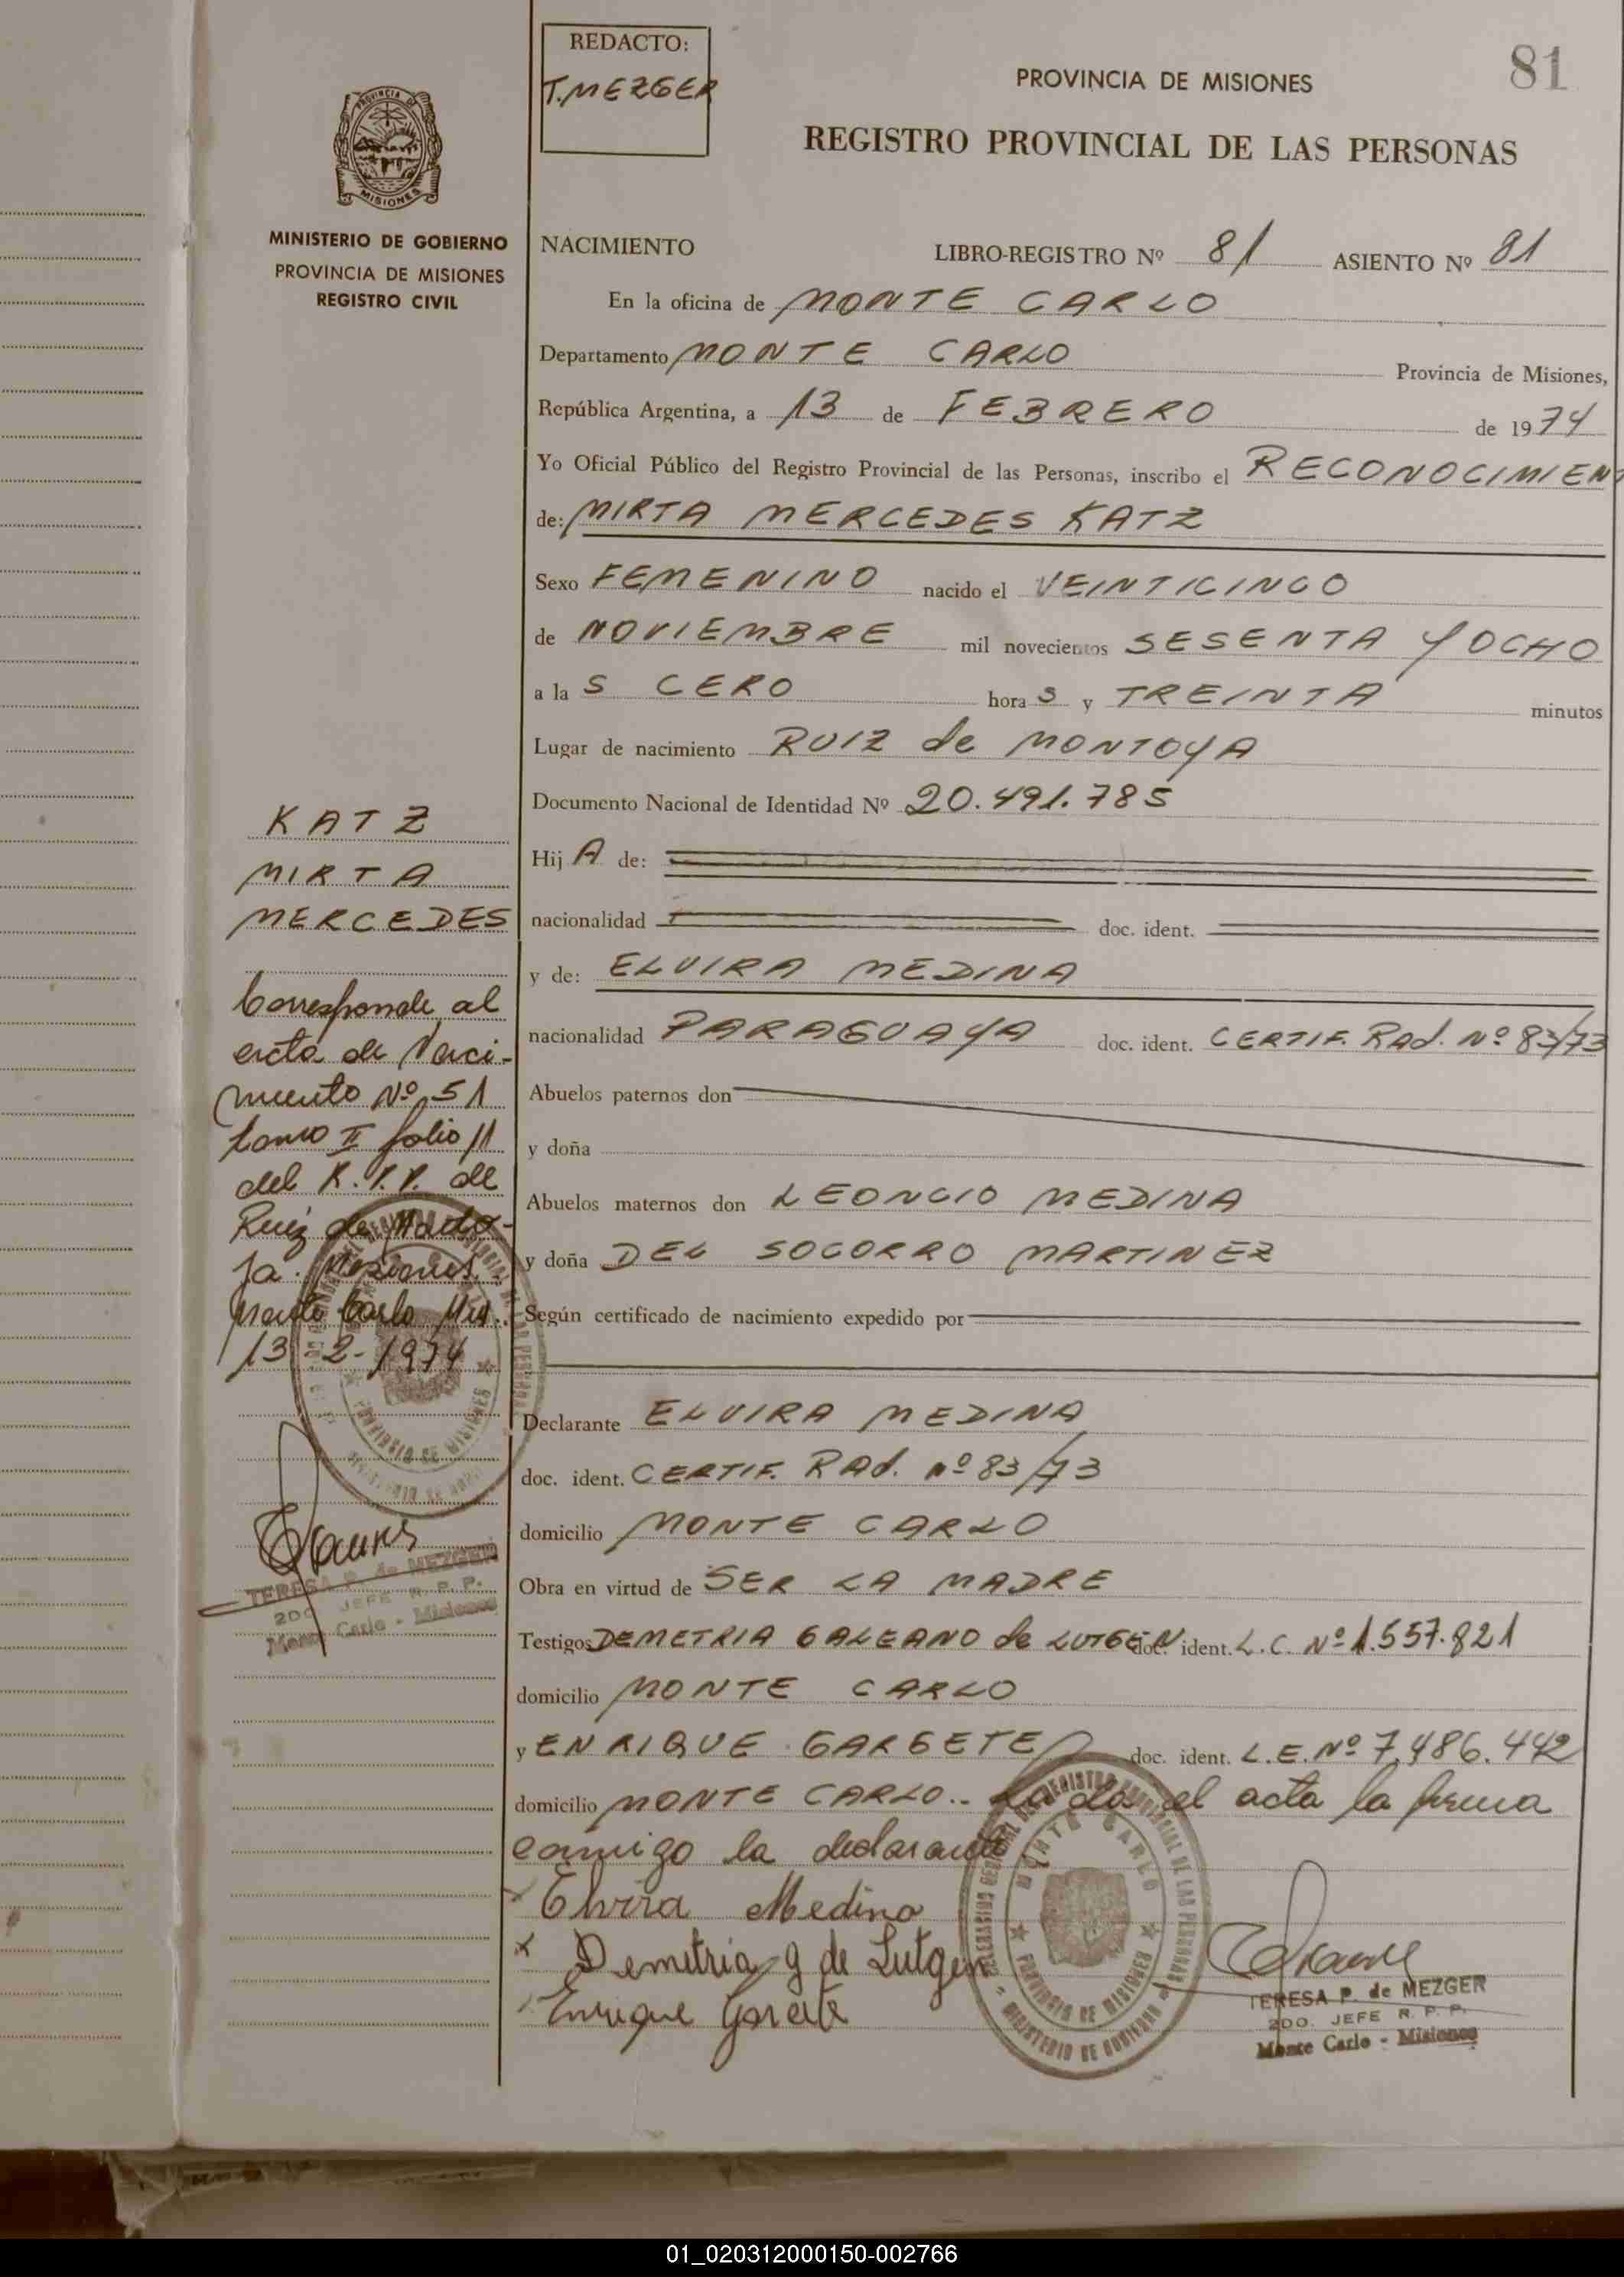 81
REDACTO:
T. MEZGER
PROVINCIA DE MISIONES
REGISTRO PROVINCIAL DE LAS PERSONAS
PROVINCIA DE
MISIONES
MINISTERIO DE GOBIERNO
PROVINCIA DE MISIONES
REGISTRO CIVIL
NACIMIENTO LIBRO-REGISTRO Nº 81 ASIENTO Nº 81
En la oficina de MONTE CARLO
Departamento MONTE CARLO Provincia de Misiones,
República Argentina, a 13 de FEBRERO de 1974
Yo Oficial Público del Registro Provincial de las Personas, inscribo el RECONOCIMIEN
de: MIRTA MERCEDES KATZ
Sexo FEMENINO nacido el VEINTICINCO
de NOVIEMBRE mil novecientos SESENTA Y OCHO
a la S CERO hora S y TREINTA minutos
Lugar de nacimiento RUIZ de MONTOYA
Documento Nacional de Identidad Nº 20.491.785
Hij A de:
nacionalidad doc. ident.
y de: ELVIRA MEDINA
nacionalidad PARAGUAYA doc. ident. CERTIF. Rad. Nº 83/73
Abuelos paternos don
y doña
Abuelos maternos don LEONCIO MEDINA
y doña DEL SOCORRO MARTINEZ
Según certificado de nacimiento expedido por
Declarante ELVIRA MEDINA
doc. ident. CERTIF. Rad. nº 83/73
domicilio MONTE CARLO
Obra en virtud de SER LA MADRE
Testigos DEMETRIA GALEANO de LUTGEN doc. ident. L.C. Nº 1.557.821
domicilio MONTE CARLO
y ENRIQUE GARSETE doc. ident. L.E. Nº 7.486.442
domicilio MONTE CARLO.. el acta la firma
conmigo la declarante
Elvira Medina
x Demetria g de Lutgen
Enrique
TERESA P. de MEZGER
2DO. JEFE R. P. P.
Monte Carlo - Misiones
KATZ
MIRTA
MERCEDES
Corresponde al
acta de Naci-
miento Nº 51
tomo II folio 11
del R.P.P. de
Ruiz de Monto-
ya. Misiones.
Monte Carlo Mis.
13-2-1974
TERESA P. de MEZGER
2DO JEFE R. P. P.
Monte Carlo - Misiones
MONTE CARLO
PROVINCIA DE MISIONES
MINISTERIO DE GOBIERNO
01_020312000150-002766